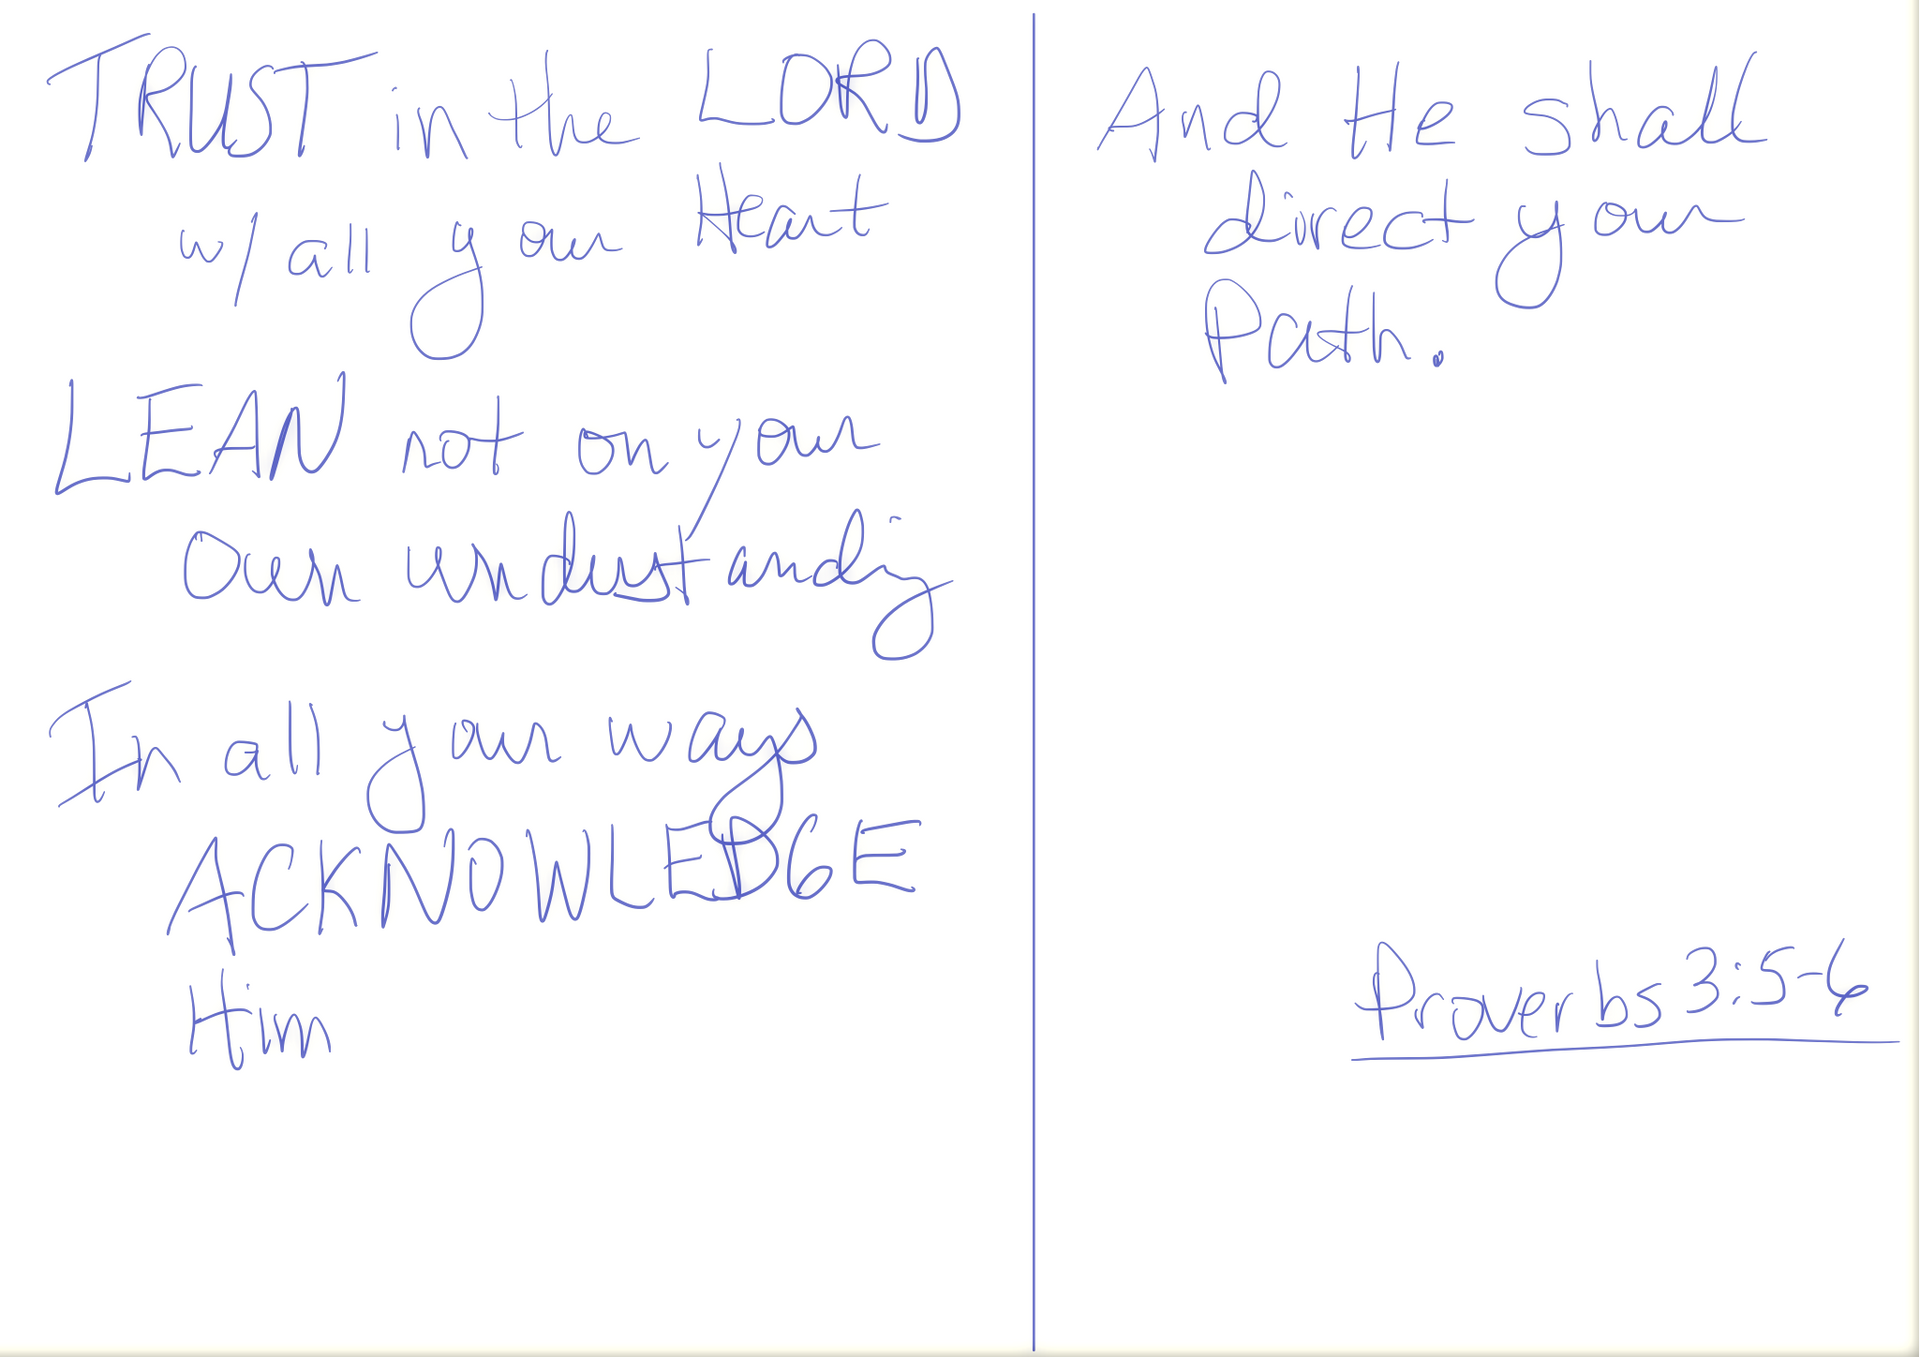 TRUST in the LORD
w/ all your Heart
LEAN not on your
Own understanding
In all your ways
ACKNOWLEDGE
Him
And He shall
direct your
Path.
Proverbs 3:5-6